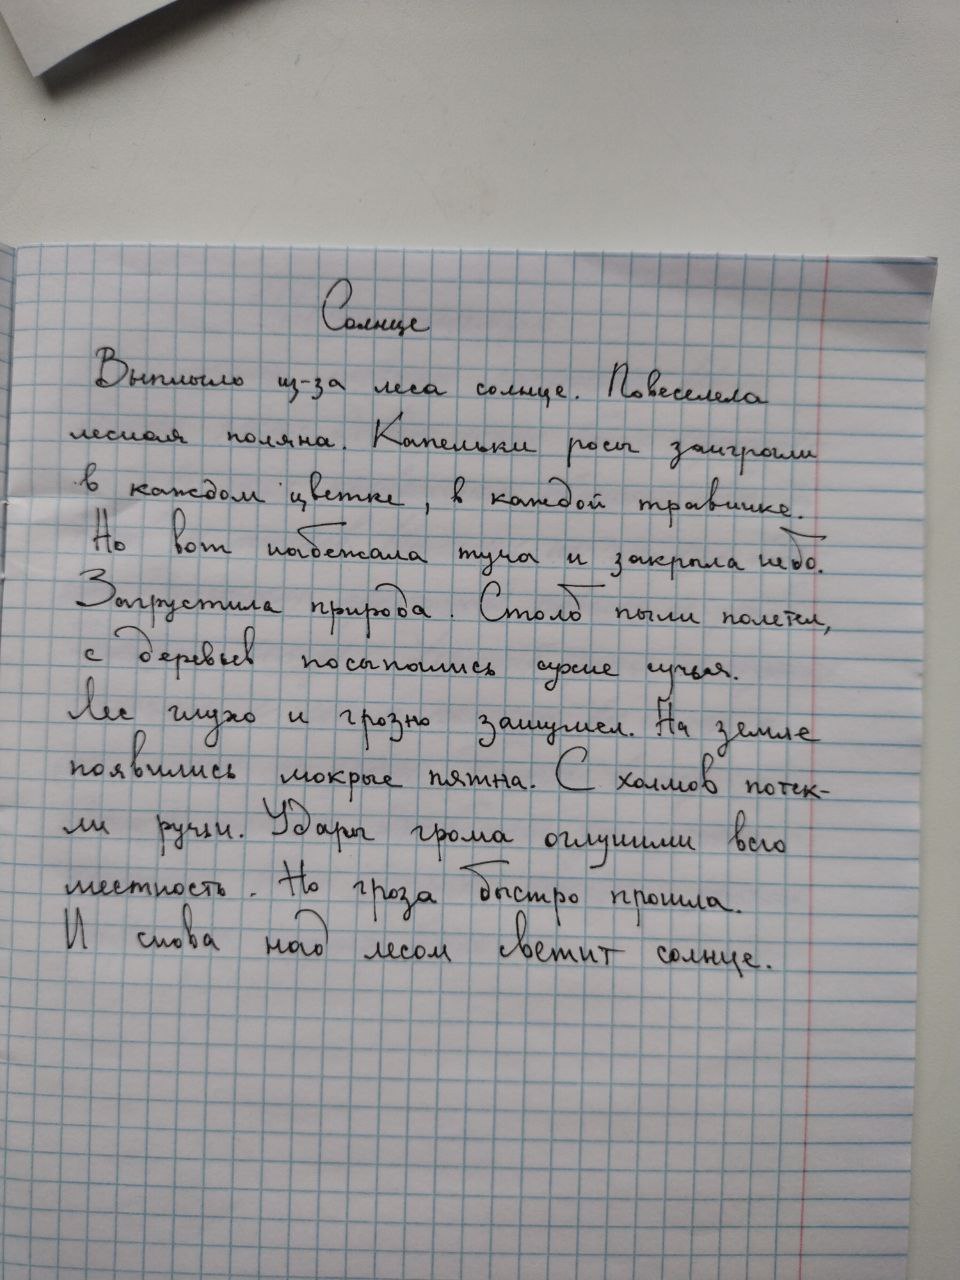 Солнце
Выплыло из-за леса солнце. Повеселела
лесная поляна. Капельки росы заиграли
в каждом цветке, в каждой травинке.
Но вот набежала туча и закрыла небо.
Загрустила природа. Столб пыли полетел,
с деревьев посыпались сухие сучья.
Лес глухо и грозно зашумел. На земле
появились мокрые пятна. С холмов потек-
ли ручьи. Удары грома оглушили всю
местность. Но гроза быстро прошла.
И снова над лесом светит солнце.